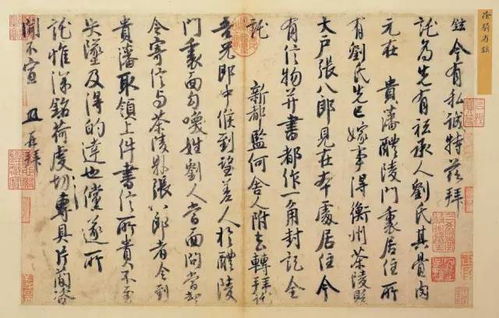 鉉今有私誠特兹拜
託為先有祗承人劉氏其骨肉
元在 貴藩醴陵門裏居住所
有劉氏先已嫁事得衡州茶陵縣
大戶張八郎見在本處居住今
有信物并書都作一角封記全
託
新都監何舍人附去轉拜託
吾兄郎中候到望差人於醴陵
門裏面勾喚姓劉人當面問當却
令寄信与茶陵縣張八郎者令到
貴藩取領上件書信所貴不至
失墜及得的達也儻遂所
託惟深銘荷虔切專具片簡咨
聞不宣 鉉再拜